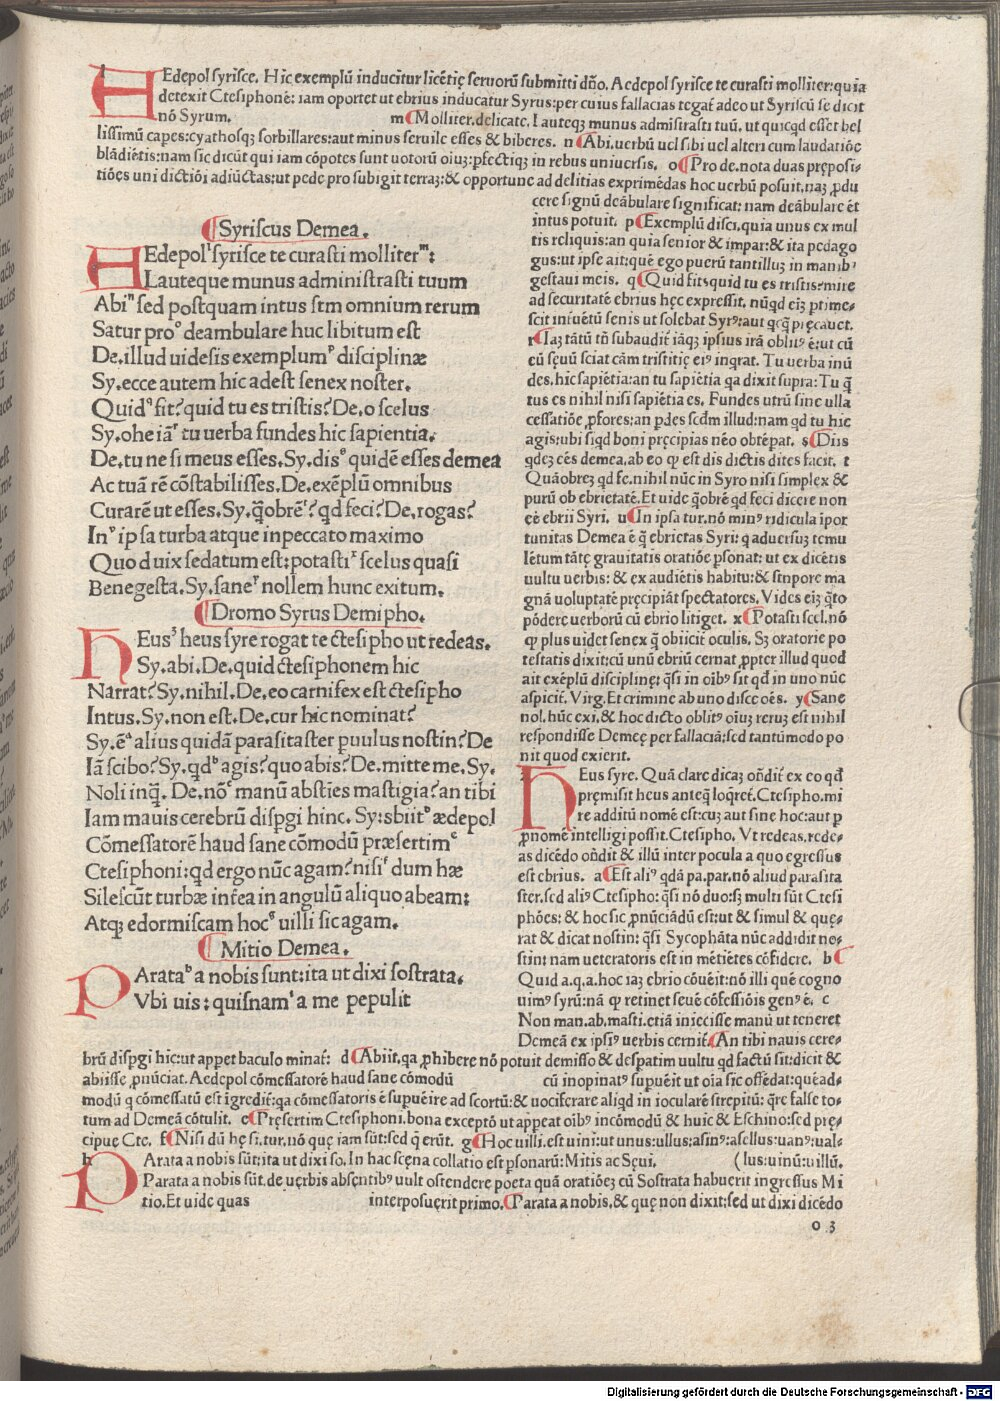 l
AEdepol syrisce. Hic exemplũ inducitur licẽtię seruorũ submitti dño. Aedepol syrisce te curasti molliter: quia
detexit Ctesiphonẽ: iam oportet ut ebrius inducatur Syrus: per cuius fallacias tegat̃ adeo ut Syriscũ se dicit
nõ Syrum. m ¶Molliter. delicate. Lauteqȝ munus admistrasti tuũ. ut quicqd esset bel
lissimũ capes: cyathosqȝ sorbillares: aut minus seruile esses & biberes. n ¶Abi. uerbũ uel sibi uel alteri cum laudatiõe
blãdiẽtis: nam sic dicũt qui iam cõpotes sunt uotorũ oiuȝ: pfectiqȝ in rebus uniuersis. o ¶Pro de. nota duas pręposi-
tiões uni dictiõi adiũctas: ut pede pro subigit terraȝ: & opportune ad delitias exprimẽdas hoc uerbũ posuit. naȝ ꝓdu
cere signũ deãbulare significat: nam deãbulare ẽt
intus potuit. p ¶Exemplũ disci. quia unus ex mul
tis reliquis: an quia senior & impar: & ita pedago
gus: ut ipse ait: quẽ ego puerũ tantilluȝ in manibꝰ
gestaui meis. q ¶Quid fit: quid tu es tristis: mire
ad securitatẽ ebrius hęc expressit. nũqd eiȝ prime-
scit insuetũ senis ut solebat Syrꝰ: aut qcq̃ pręcauet.
r ¶Iaȝ tãtũ tñ subaudit̃ iãqȝ ipsius irã oblitꝰ ẽ: ut cũ
cũ sęuũ sciat cãm tristitię eiꝰ inqrat. Tu uerba inũ
des. hic sapiẽtia: an tu sapiẽtia qa dixit supra: Tu q̃
tus es nihil nisi sapiẽtia es. Fundes utrũ sine ulla
cessatiõe ꝓfores: an ꝓdes scdm illud: nam qd tu hic
agis: ubi siqd boni pręcipias nẽo obtẽpat. s ¶Diis
qdeȝ cẽs demea. ab eo qꝫ est dis dictis dites facit. t
Quãobreȝ qd fe. nihil nũc in Syro nisi simplex &
purũ ob ebrietatẽ. Et uide q̃obrẽ qd feci dicere non
eẽ ebrii Syri. u ¶In ipsa tur. nõ minꝰ ridicula ipor
tunitas Demea ẽ q̃ ebrietas Syri: q aduersuȝ temu
lẽtum tãtę grauitatis oratiõe psonat: ut ex dicẽtis
uultu uerbis: & ex audiẽtis habitu: & stupore ma
gnã uoluptatẽ pręcipiãt spectatores. Vides eiȝ q̃to
põdere uerborũ cũ ebrio litiget. x ¶Potasti scel. nõ
qꝫ plus uidet senex q̃ obiicit̃ oculis. Sȝ oratorie po
testatis dixit: cũ unũ ebriũ cernat ꝓpter illud quod
ait exẽplũ discipline: q̃si in oibꝰ sit qd in uno nũc
aspicit. Virg. Et crimine ab uno disce oẽs. y ¶Sane
nol. hũc exi. & hoc dicto oblitꝰ oiuȝ reruȝ est nihil
respondisse Demeę per fallaciã: sed tantũmodo po
nit quod exierit.
¶Syriscus Demea.
AEdepolˡ syrisce te curasti molliterᵐ:
Lauteque munus administrasti tuum
Abiⁿ sed postquam intus sũm omnium rerum
Satur proᵒ deambulare huc libitum est
De. illud uidesis exemplumᵖ disciplinæ
Sy. ecce autem hic adest senex noster.
Quidq fit? quid tu es tristis? De. o scelus
Sy. ohe iãʳ tu uerba fundes hic sapientia.
De. tu ne si meus esses. Sy. disˢ quidẽ esses demea
Ac tuã rẽ cõstabilisses. De. exẽplũ omnibus
Curarẽ ut esses. Sy. q̃obrẽᵗ? qd feci? De. rogas?
Inᵘ ipsa turba atque inpeccato maximo
Quod uix sedatum est: potastiˣ scelus quasi
Benegesta. Sy. saneʸ nollem hunc exitum.
¶Dromo Syrus Demipho.
HEusᶻ heus syre rogat te ctesipho ut redeas.
Sy. abi. De. quid ctesiphonem hic
Narrat? Sy. nihil. De. eo carnifex est ctesipho
Intus. Sy. non est. De. cur hic nominat?
Sy. ẽᵃ alius quidã parasitaster puulus nostin? De
Iã scibo? Sy. qdᵇ agis? quo abis? De. mitte me. Sy.
Noli inq̃. De. nõᶜ manũ absties mastigia? an tibi
Iam mauis cerebrũ dispgi hinc. Sy: sbiitᵈ ædepol
Cõmessatorẽ haud sane cõmodũ præsertimᵉ
Ctesiphoni: qd ergo nũc agam? nisiᶠ dum hæ
Silescũt turbæ intea in angulũ aliquo abeam:
Atqȝ edormiscam hocᵍ uilli sic agam.
¶Mitio Demea.
PArataʰ a nobis sunt: ita ut dixi sostrata.
Vbi uis: quisnamⁱ a me pepulit
z
HEus syre. Quã clare dicaȝ oñdit̃ ex eo qd̃
pręmisit heus anteq̃ loqret̃. Ctesipho. mi
re additũ nomẽ est: cuȝ aut sine hoc: aut p
ꝓnomẽ intelligi possit. Ctesipho. Vt redeas. rede-
as dicẽdo oñdit & illũ inter pocula a quo egressus
est ebrius. a ¶Est aliꝰ qdã pa. par. nõ aliud parasita
ster. sed aliꝰ Ctesipho: q̃si nõ duo: sȝ multi sũt Ctesi
phões: & hoc sic ꝓnũciãdũ est: ut & simul & quę-
rat & dicat nostin: q̃si Sycophãta nũc addidit no-
stin: nam ueteratoris est in mẽtiẽtes cõfidere. b ¶
Quid a. q. a. hoc iaȝ ebrio cõuẽit: nõ illi quẽ cogno
uimꝰ syrũ: nã qꝫ retinet seuẽ cõfessiõis genꝰ ẽ. c
Non man. ab. masti. etiã iniecisse manũ ut teneret
Demeã ex ipsiꝰ uerbis cernit̃. ¶An tibi nauis cere-
brũ dispgi hic: ut appet baculo minat̃: d ¶Abiit. qa ꝓhibere nõ potuit demisso & despatim uultu qd factũ sit: dicit &
abiisse ꝓnũciat. Aedepol cõmessatorẽ haud sane cõmodũ cũ inopinatꝰ supuẽit ut oĩa sic offẽdat: quẽad-
modũ q cõmessatũ est igredit̃: qa cõmessatoris ẽ supuẽire ad scortũ: & uociferare aliqd in ioculare strepitũ: q̃re falso to-
tum ad Demeã cõtulit. e ¶Pręsertim Ctesiphoni. bona exceptõ ut appeat oibꝰ incõmodũ & huic & Eschino: sed pręc-
cipuę Cte. f ¶Nisi dũ hę si. tur. nõ quę iam sũt: sed q̃ erũt. g ¶Hoc uilli. est uini: ut unus: ullus: asinꝰ: asellus: uanꝰ: ual-
h
PArata a nobis sũt: ita ut dixi so. In hac scęna collatio est psonarũ: Mitis ac Sęui. (lus: uinũ: uillũ.
Parata a nobis sũt. de uerbis absẽntibꝰ uult ostendere poeta quã oratiõeȝ cũ Sostrata habuerit ingressus Mi
tio. Et uide quas interposuęrit primo. ¶Parata a nobis. & quę non dixit: sed ut dixi dicẽdo
o 3
Digitalisierung gefördert durch die Deutsche Forschungsgemeinschaft - DFG